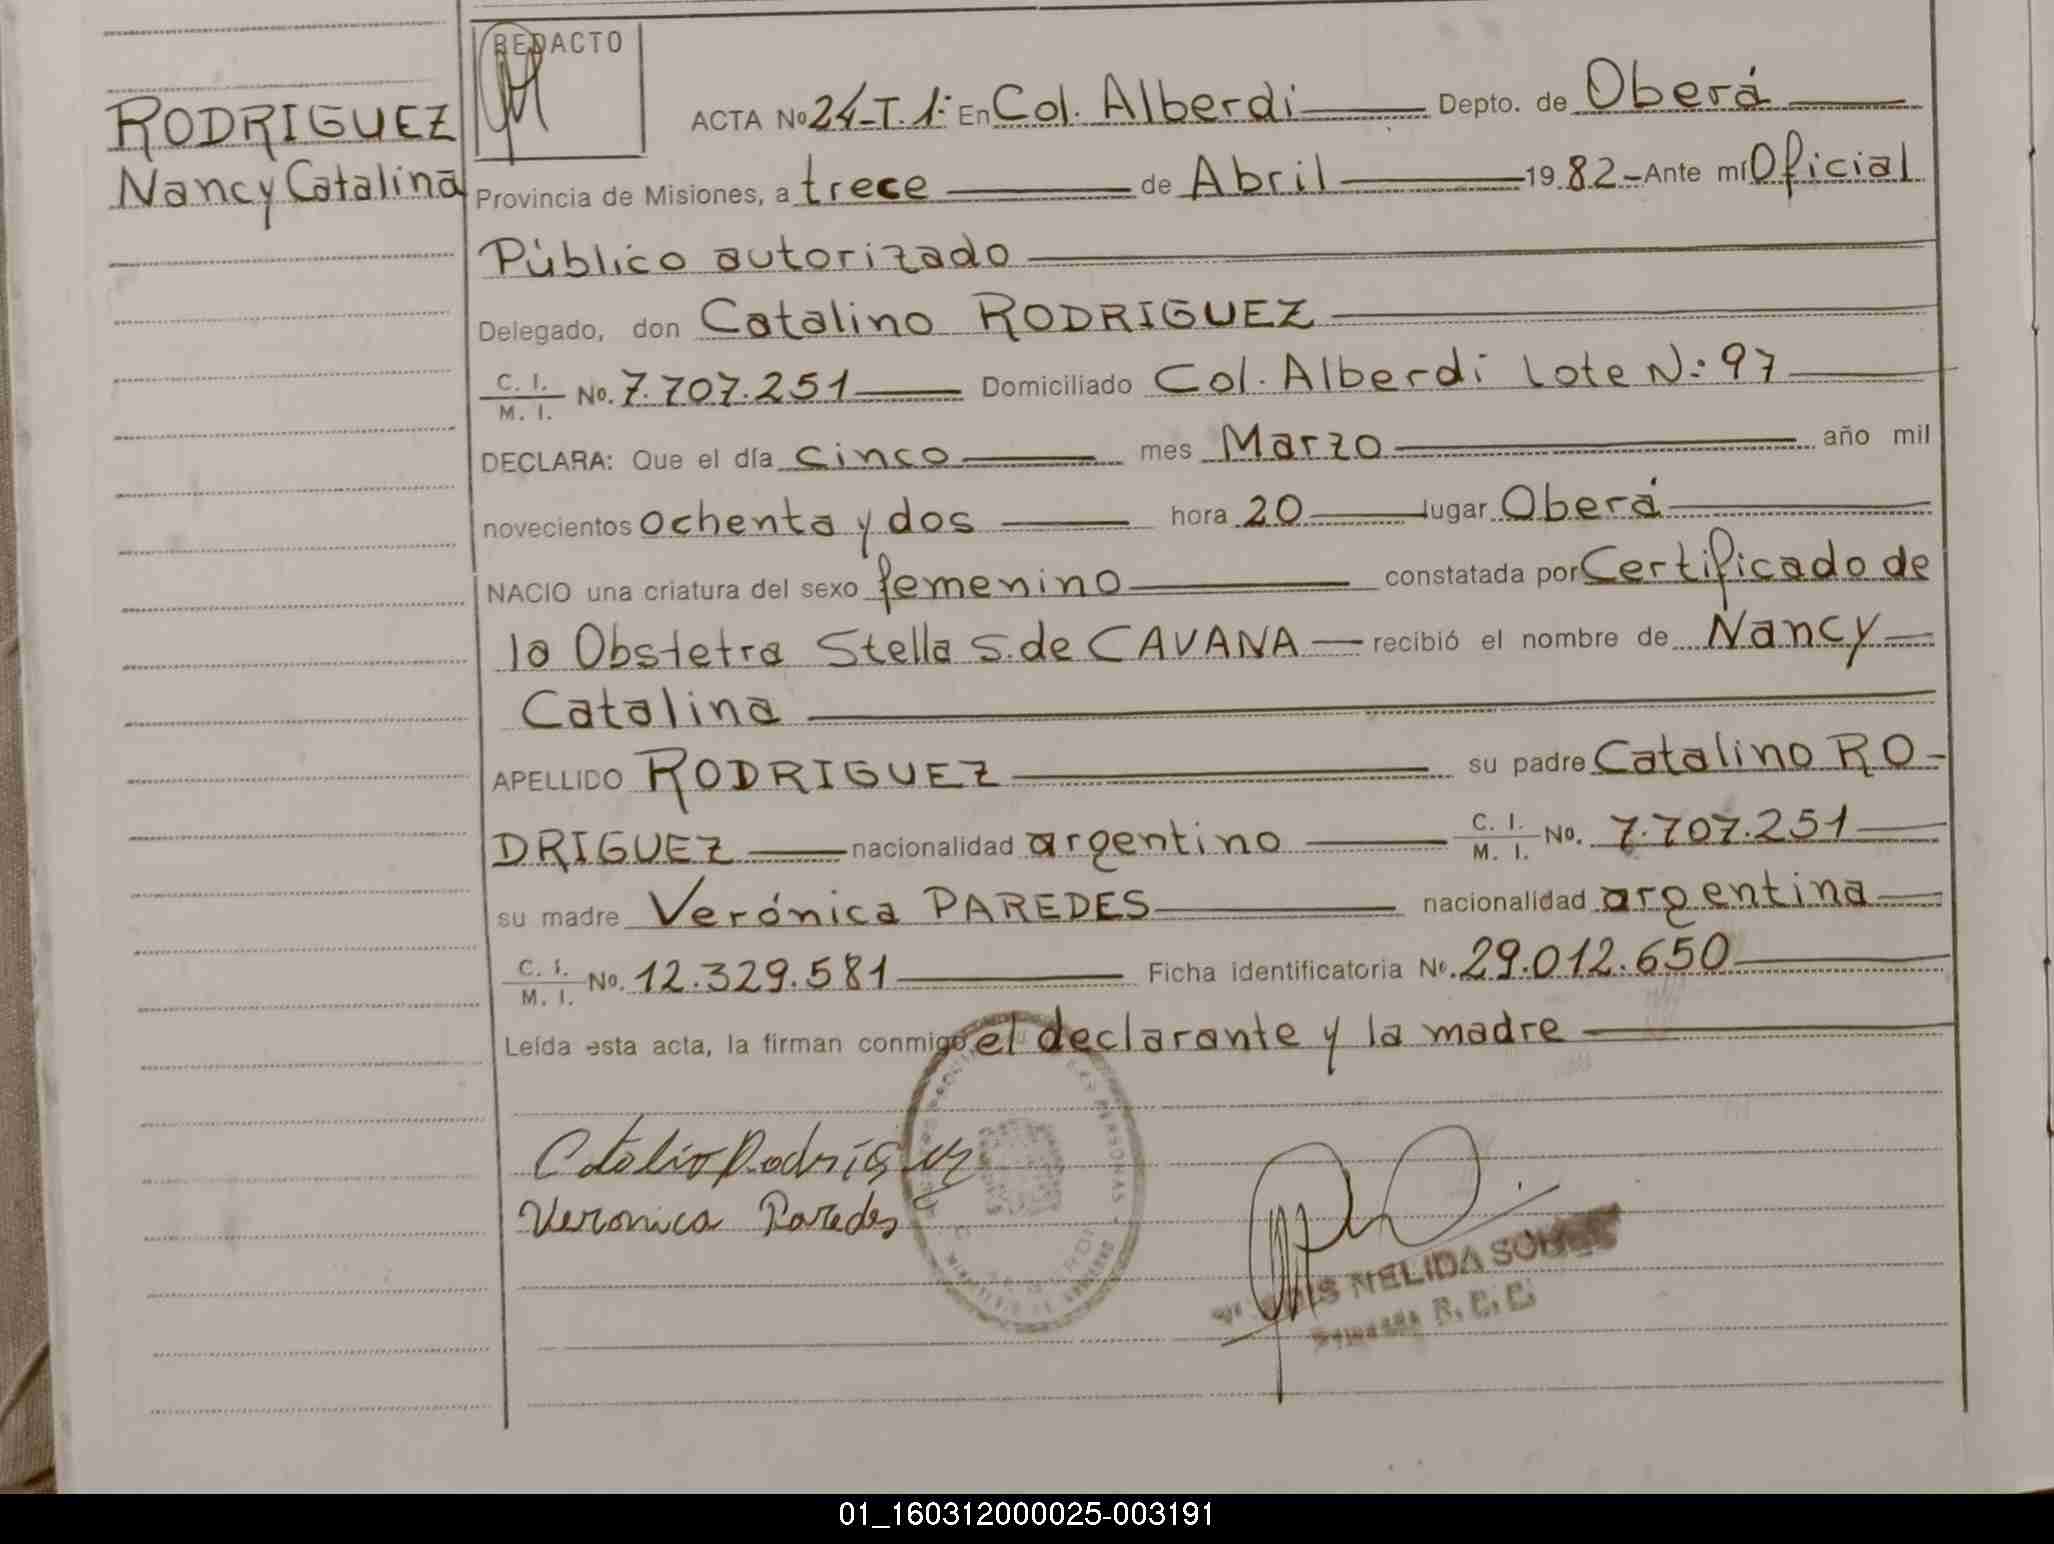 REDACTO
RODRIGUEZ
Nancy Catalina
ACTA Nº 24-T.1: En Col. Alberdi Depto. de Oberá
Provincia de Misiones, a trece de Abril 1982 - Ante mí Oficial
Público autorizado
Delegado, don Catalino RODRIGUEZ
C. I. / M. I. Nº. 7.707.251 Domiciliado Col. Alberdi Lote N: 97
DECLARA: Que el día cinco mes Marzo año mil
novecientos ochenta y dos hora 20 lugar Oberá
NACIO una criatura del sexo femenino constatada por Certificado de
la Obstetra Stella S. de CAVANA recibió el nombre de Nancy
Catalina
APELLIDO RODRIGUEZ su padre Catalino RO-
DRIGUEZ nacionalidad argentino C. I. / M. I. Nº. 7.707.251
su madre Verónica PAREDES nacionalidad argentina
C. I. / M. I. Nº. 12.329.581 Ficha identificatoria Nº. 29.012.650
Leída esta acta, la firman conmigo el declarante y la madre
Catalino Rodríguez
Veronica Paredes
NELIDA
R. C. C.
01_160312000025-003191